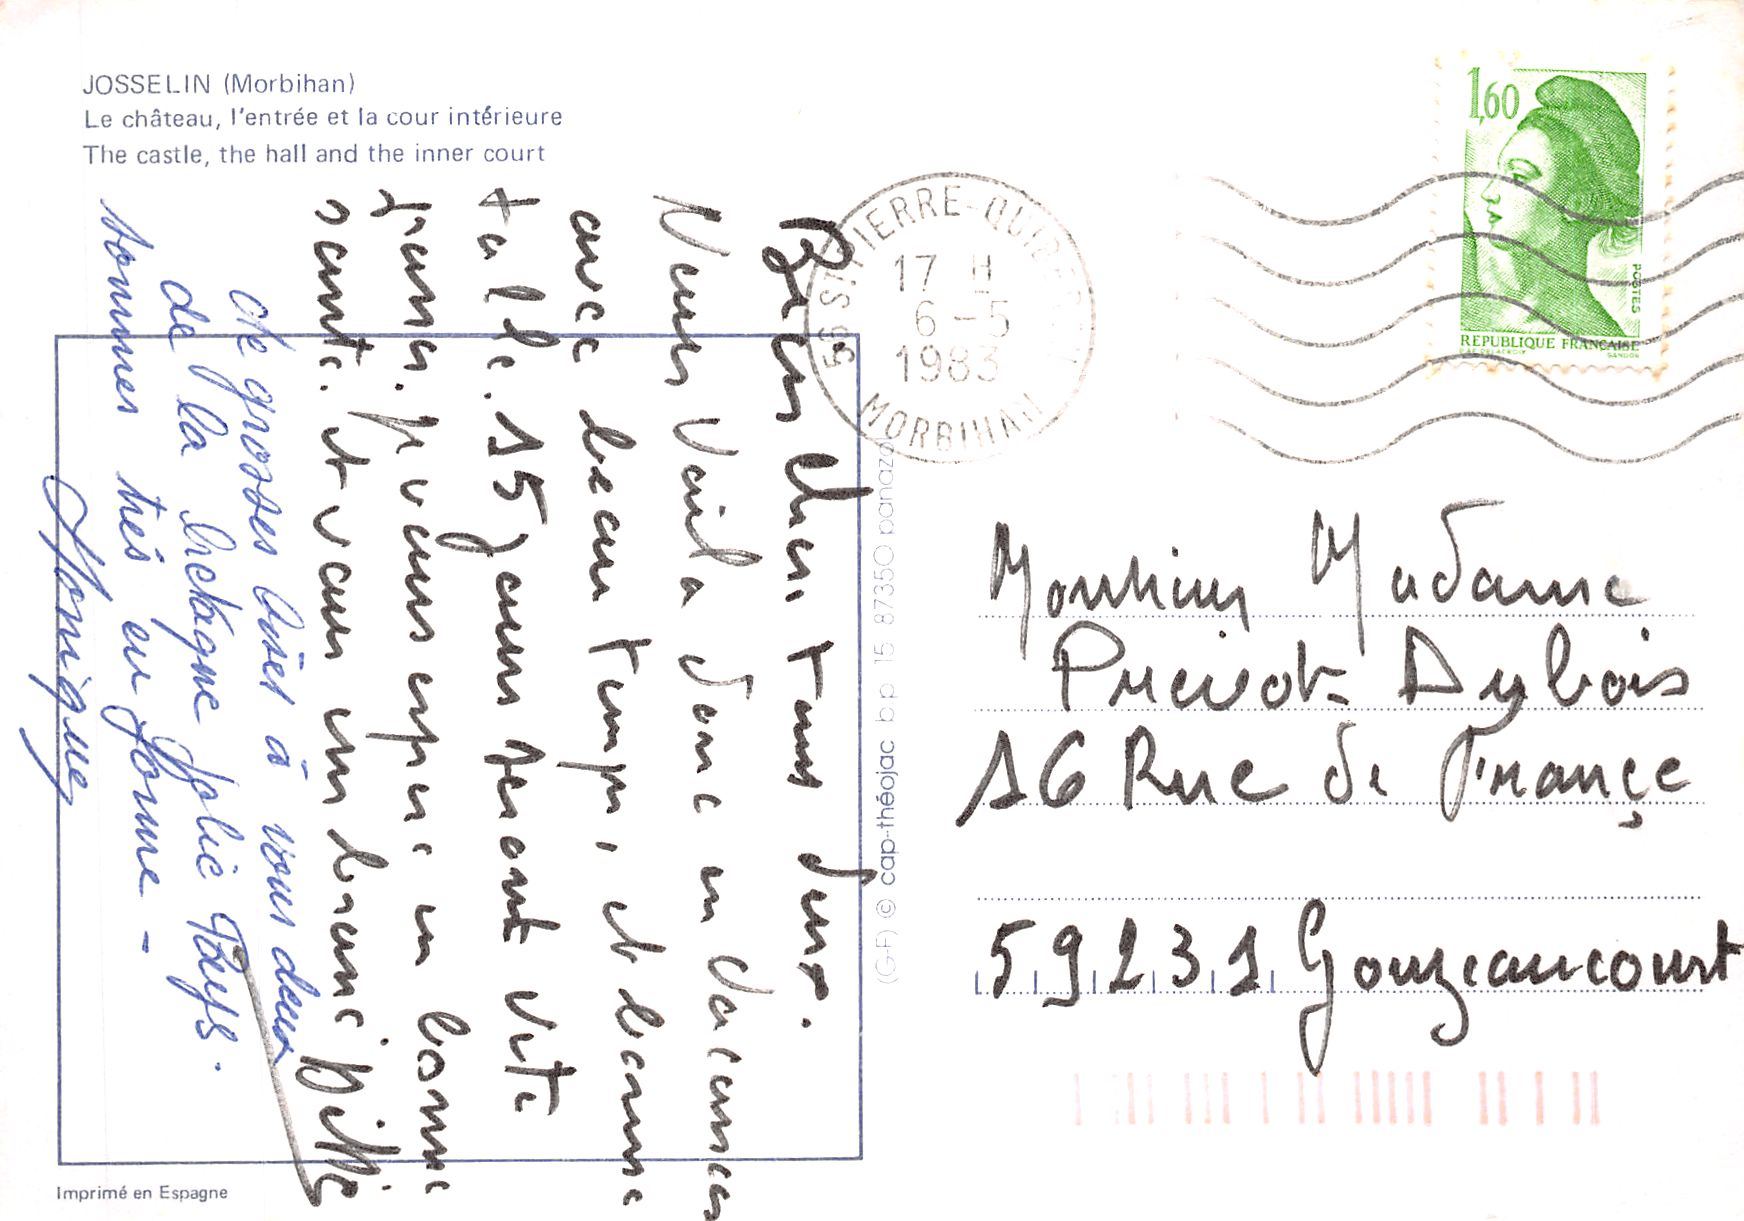 JOSSELIN (Morbihan)
Le château, l'entrée et la cour intérieure
The castle, the hall and the inner court
Bien chers tous deux.
Nous voila donc en vacances
avec beau temps, et bonne
table. 15 jours seront vite
passés. je vous espère en bonne
santé. et vous embrasse Billie
de grosses bises à vous deux
de la bretagne Jolie Pays.
sommes très en forme -
Monique
(G-F) © cap-théojac bp 15 87350 panazol
56 ST PIERRE-QUIBERON
17 H
6 - 5
1983
MORBIHAN
1,60
POSTES
REPUBLIQUE FRANÇAISE
D'AP. DELACROIX
GANDON
Monsieur Madame
Prevot Dubois
16 Rue de França̧e
59231 Gouzeaucourt
Imprimé en Espagne